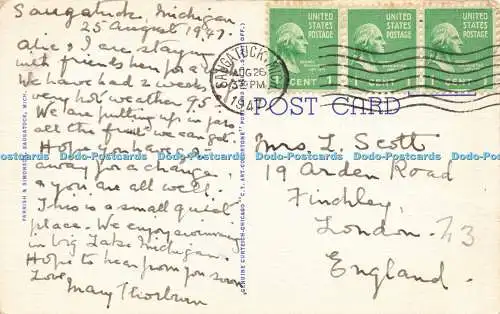 Saugatuck, Michigan
25 August 1947.
Alice, I are staying
with friends here for a
We have had 2 weeks
very hot weather 95
We are putting up in jars
all the fruit we can get.
Hope you have got
away for a change,
& you are all well.
This is a small quiet
place. We enjoy swimming
in big Lake Michigan.
Hope to hear from you soon
Love
Mary Thorburn
UNITED STATES POSTAGE
1 CENT 1
UNITED STATES POSTAGE
1 CENT 1
UNITED STATES POSTAGE
1 CENT 1
SAUGATUCK, MICH.
AUG 26
3 PM
1947
POST CARD
Mrs. L. Scott
19 Arden Road
Finchley,
London. N3
England.
PARRISH & SIMONSEN, SAUGATUCK, MICH.
GENUINE CURTEICH-CHICAGO "C.T. ART-COLORTONE" POST CARD (REG. U.S. PAT. OFF.)
Dodo-Postcards Dodo-Postcards Dodo-Postcards Dodo-Postcards Dodo-Postcards Dodo-Postcards